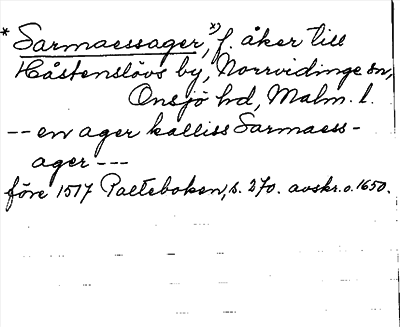 * Sarmaessager, x) f. åker till
Håstenslövs by, Norrvidinge sn,
Onsjö hd, Malm. l.
-- en ager kalliss Sarmaess-
ager ---
före 1517 Palteboken, s. 270. avskr. o. 1650.